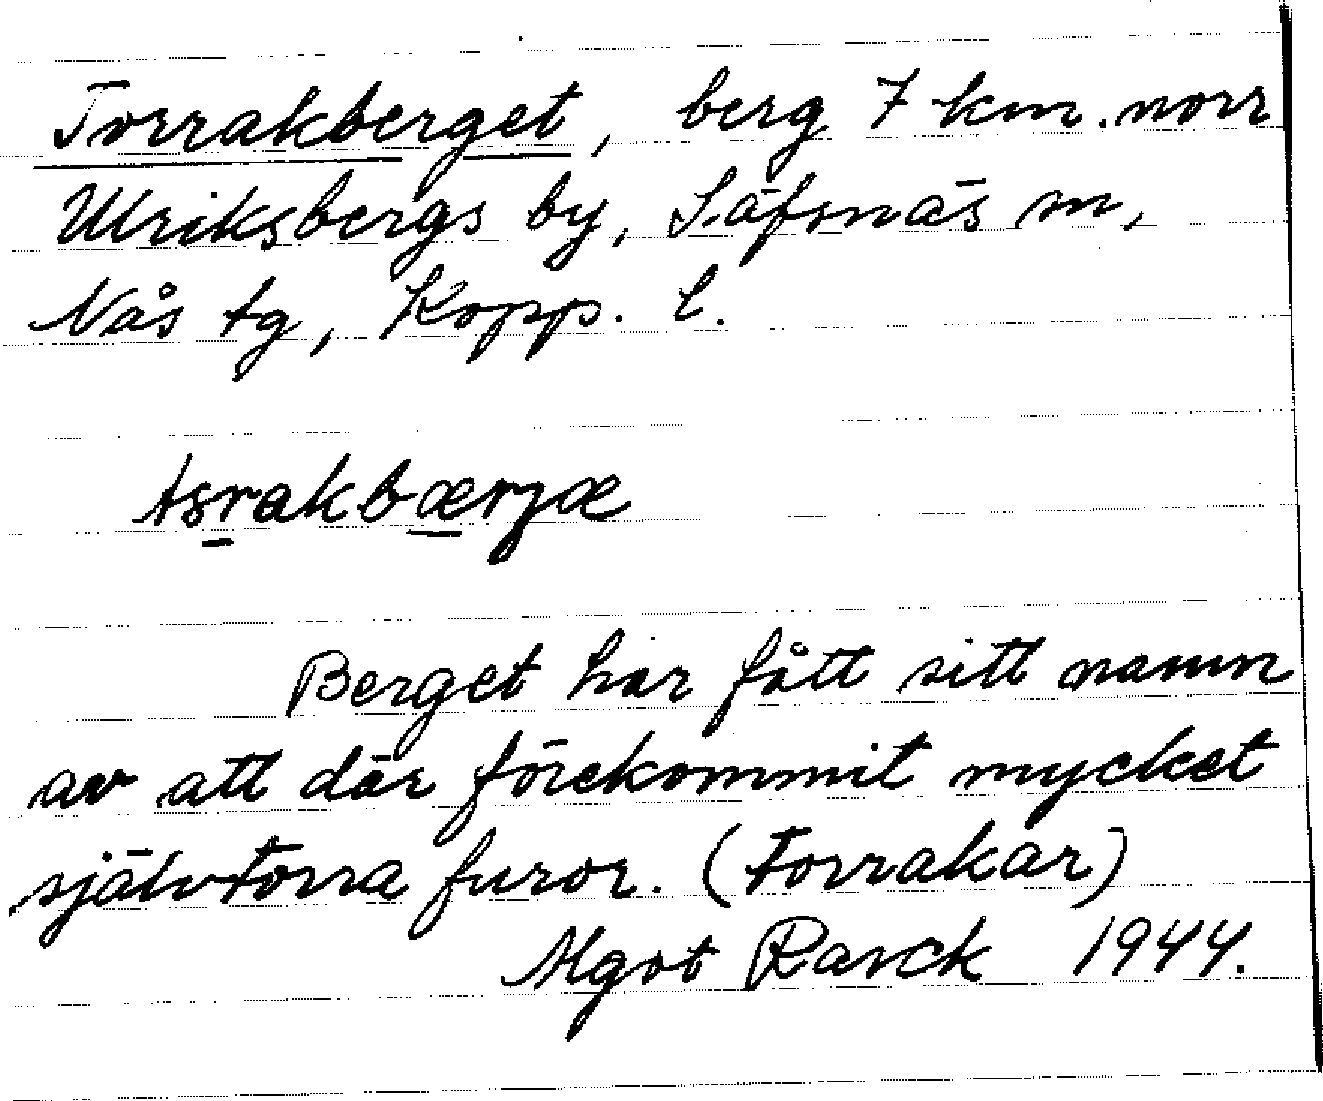 Torrakberget, berg 7 km. norr
Ulriksbergs by, Säfsnäs sn,
Nås tg, Kopp. l.
Berget har fått sitt namn
av att där förekommit mycket
självtorra furor. (Torrakar)
Mgot Rarck 1944.